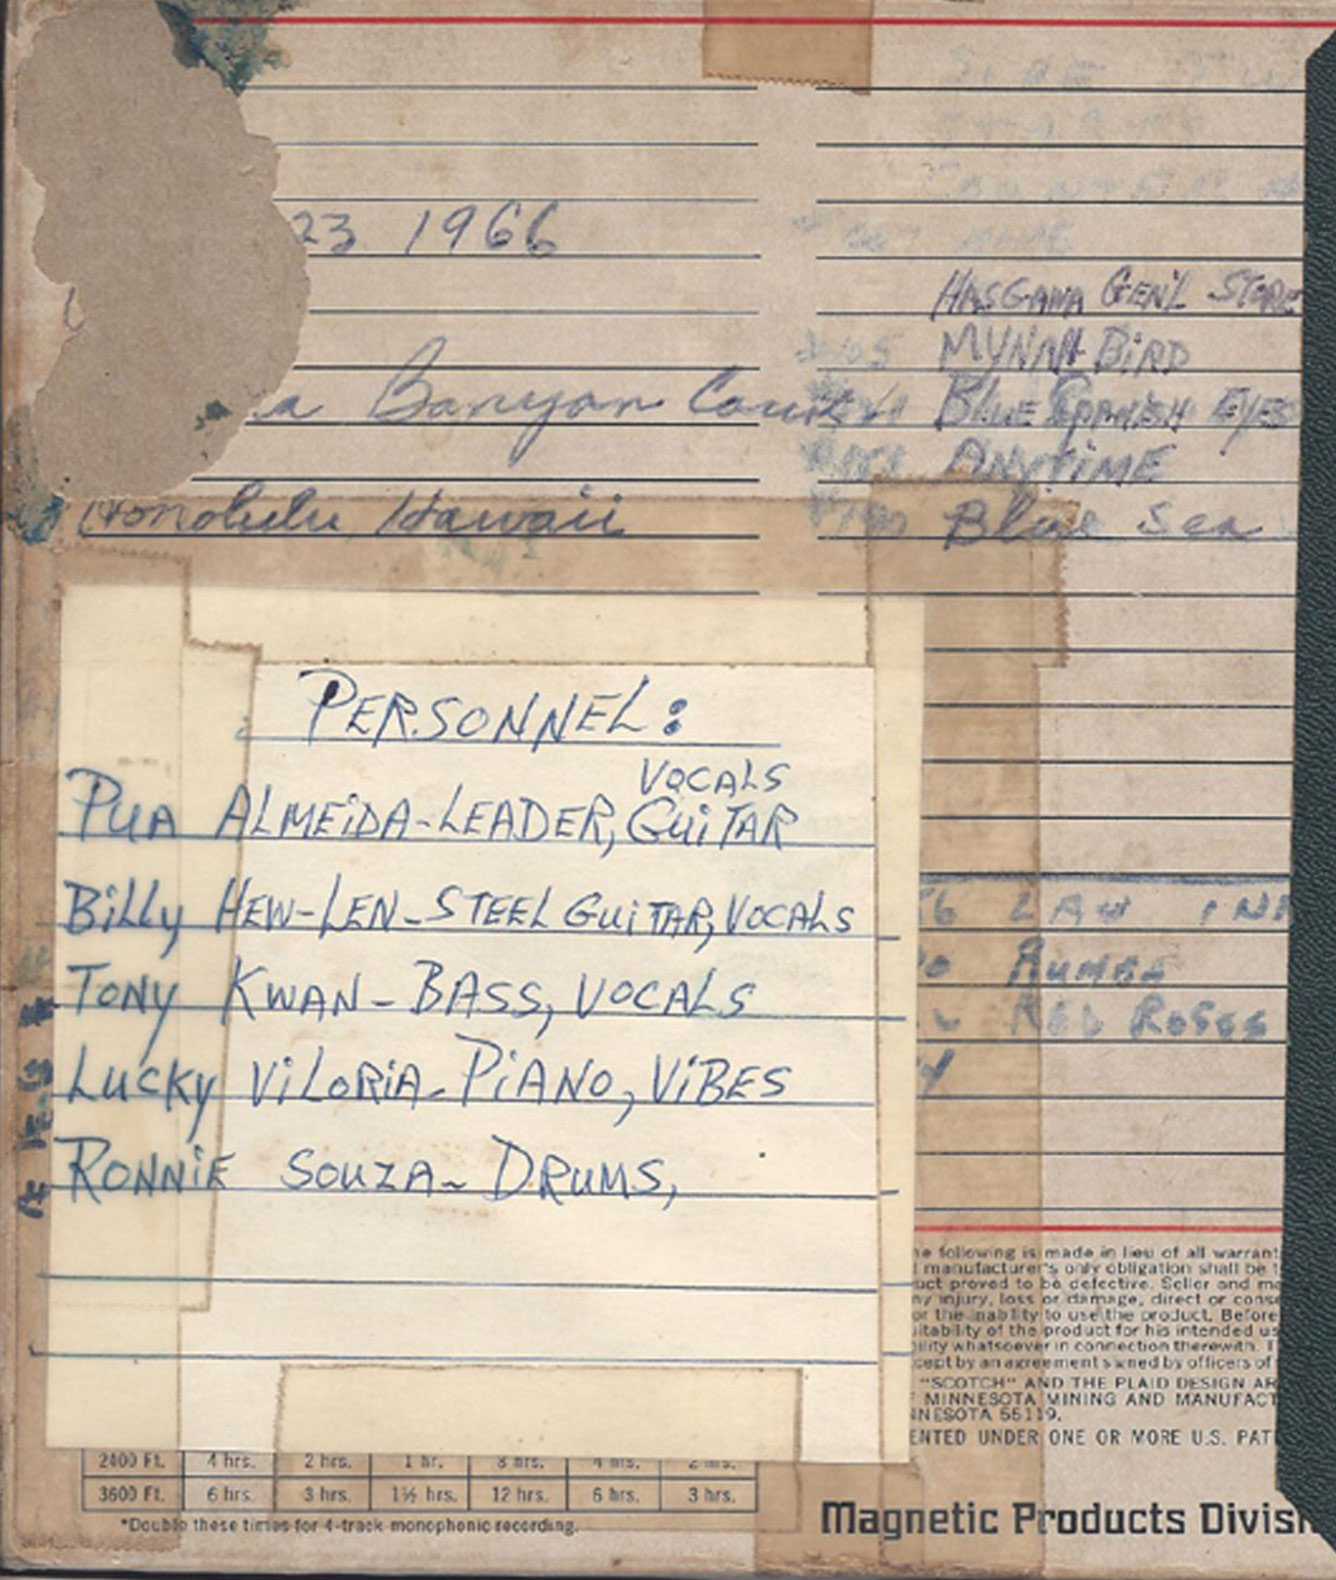 23 1966
a Banyan Court
Honolulu, Hawaii
HASGAWA GEN'L STORE
MYNAH BIRD
BLUE SPANISH EYES
ANYTIME
Blue Sea
PERSONNEL:
VOCALS
PUA ALMEiDA-LEADER, GUiTAR
BiLLy HEW-LEN-STEEL GUiTAR, VOCALS
TONy KWAN-BASS, VOCALS
LUCKy ViLORiA-PiANO, ViBES
RONNiE SOUZA-DRUMS,
RUMBA
RED ROSES
he following is made in lieu of all warrant
manufacturer's only obligation shall be t
uct proved to be defective. Seller and ma
ny injury, loss or damage, direct or conse
or the inability to use the product. Before
uitability of the product for his intended us
ility whatsoever in connection therewith. T
cept by an agreement signed by officers of
"SCOTCH" AND THE PLAID DESIGN AR
F MINNESOTA MINING AND MANUFACT
NNESOTA 55119.
ENTED UNDER ONE OR MORE U.S. PAT
2400 Ft. 4 hrs. 2 hrs. 1 hr. 8 hrs. 4 hrs. 2 hrs.
3600 Ft. 6 hrs. 3 hrs. 1½ hrs. 12 hrs. 6 hrs. 3 hrs.
*Double these times for 4-track monophonic recording.
Magnetic Products Divis